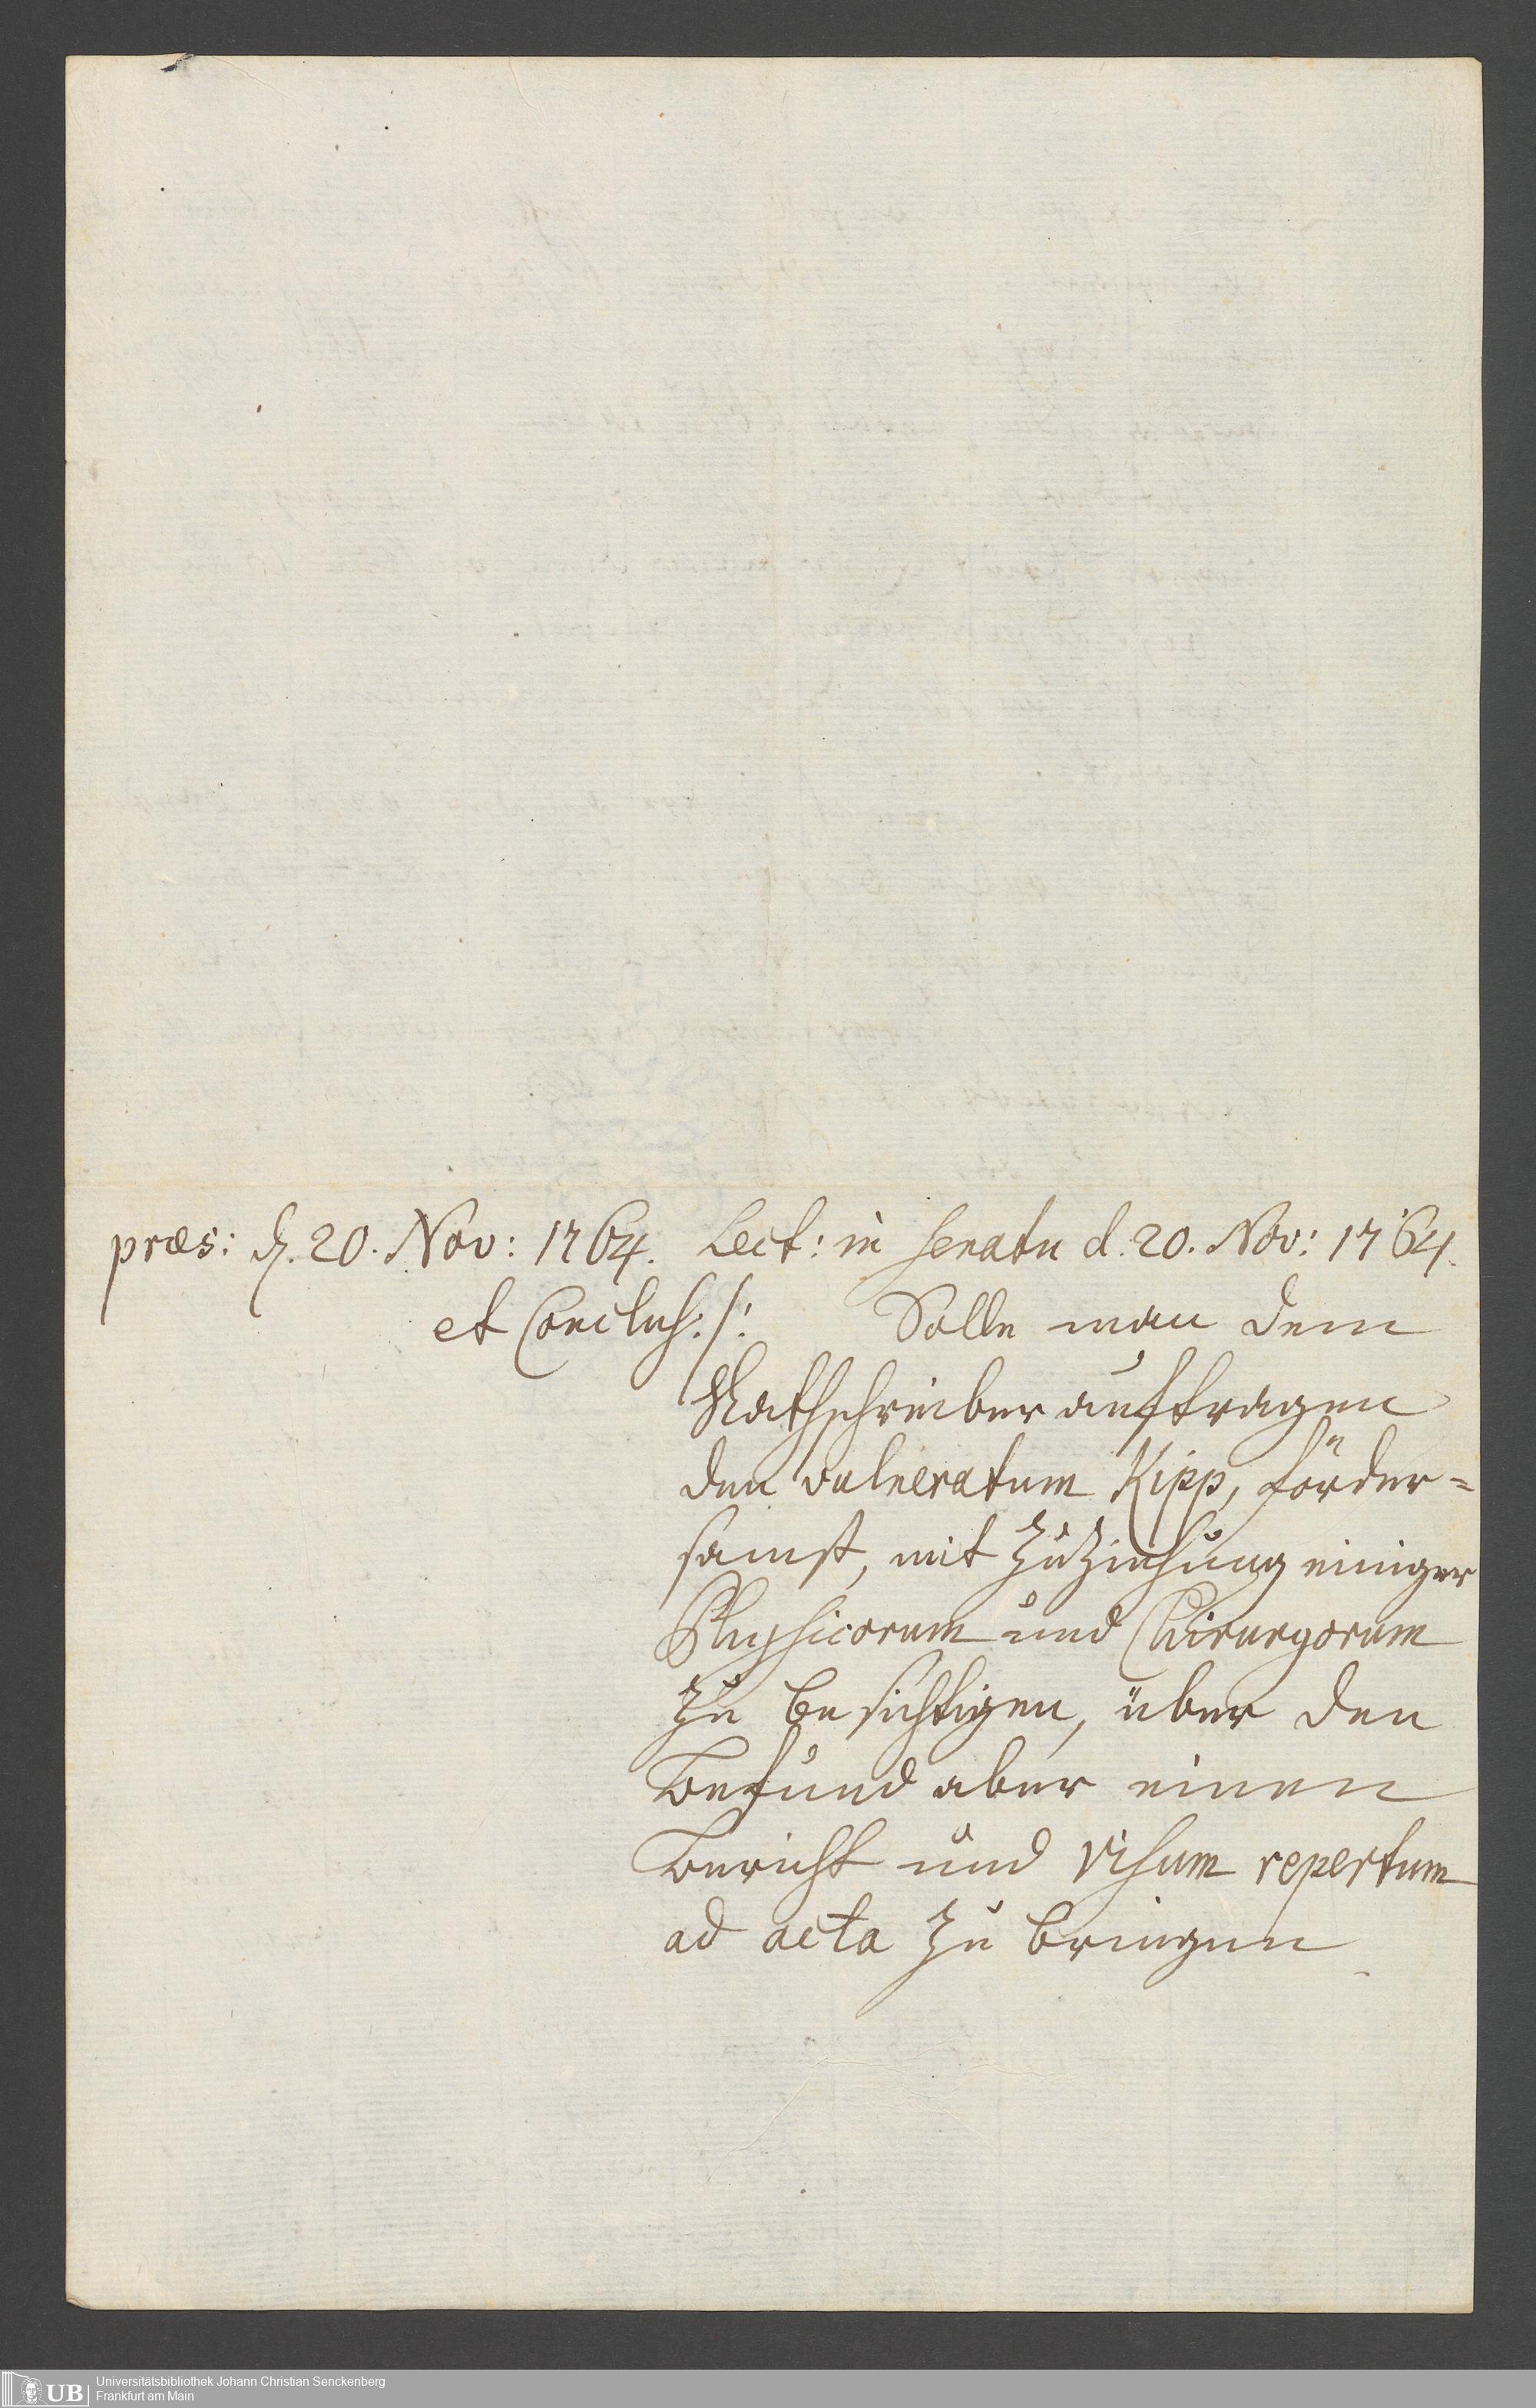 præs: d. 20. Nov: 1764. Lect: in Senatu d. 20. Nov: 1764.
et Conclus: /: Solle man dem
Rathschreiber auftragen
den vulneratum Kipp, förder=
samst, mit Zuziehung einiger
Physicorum und Chirurgorum
zu besichtigen, über den
Befund aber einen
Bericht und visum repertum
ad acta zu bringen
UB Universitätsbibliothek Johann Christian Senckenberg
Frankfurt am Main